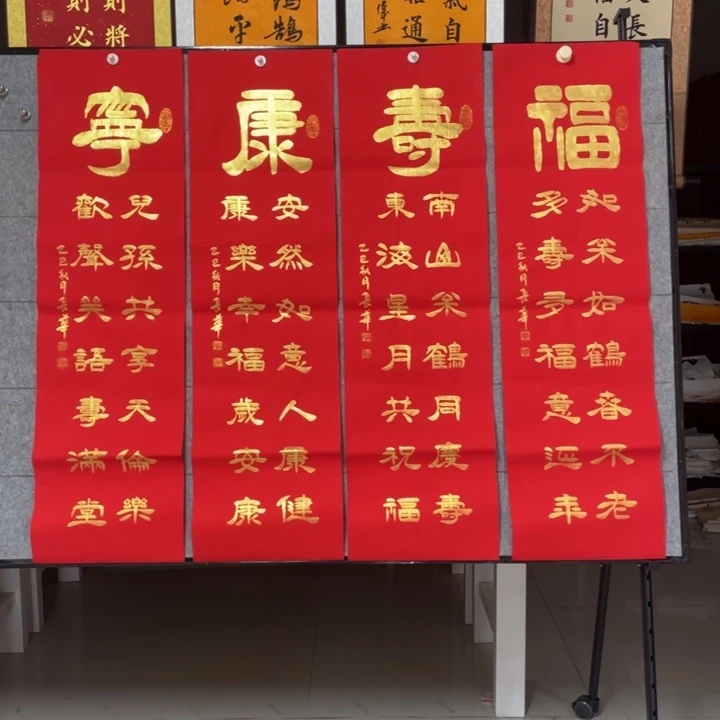 福
如枀如鶴春不老
多壽多福意延年
乙巳秋月長華
壽
南山枀鶴同慶壽
東海星月共祝福
乙巳秋月長華
康
安然如意人康健
康樂幸福歲安康
乙巳秋月長華
寧
兒孫共享天倫樂
歡聲笑語壽滿堂
乙巳秋月長華
長
自
氣自
通
鴻鵠
平
則將
則必